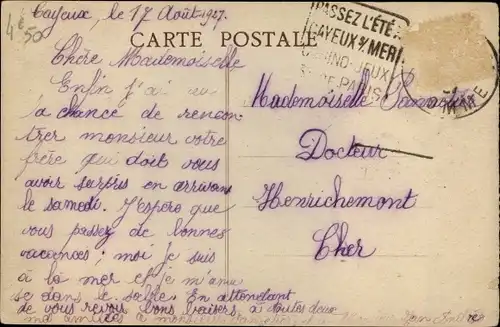 Cayeux, le 17 Août 1927.
4e50
CARTE POSTALE
PASSEZ L'ÉTÉ
CAYEUX S/MER
CASINO-JEUX
Chère Mademoiselle
Enfin j'ai eu
la chance de rencon
trer monsieur votre
frère qui doit vous
avoir surpris en arrivant
le samedi. J'espère que
vous passez de bonnes
vacances; moi je suis
à la mer et je m'amu
se dans le sable. En attendant
de vous revoir bons baisers, à toutes deux
mes amitiés à monsieur
Mademoiselle
Docteur
Henrichemont
Cher